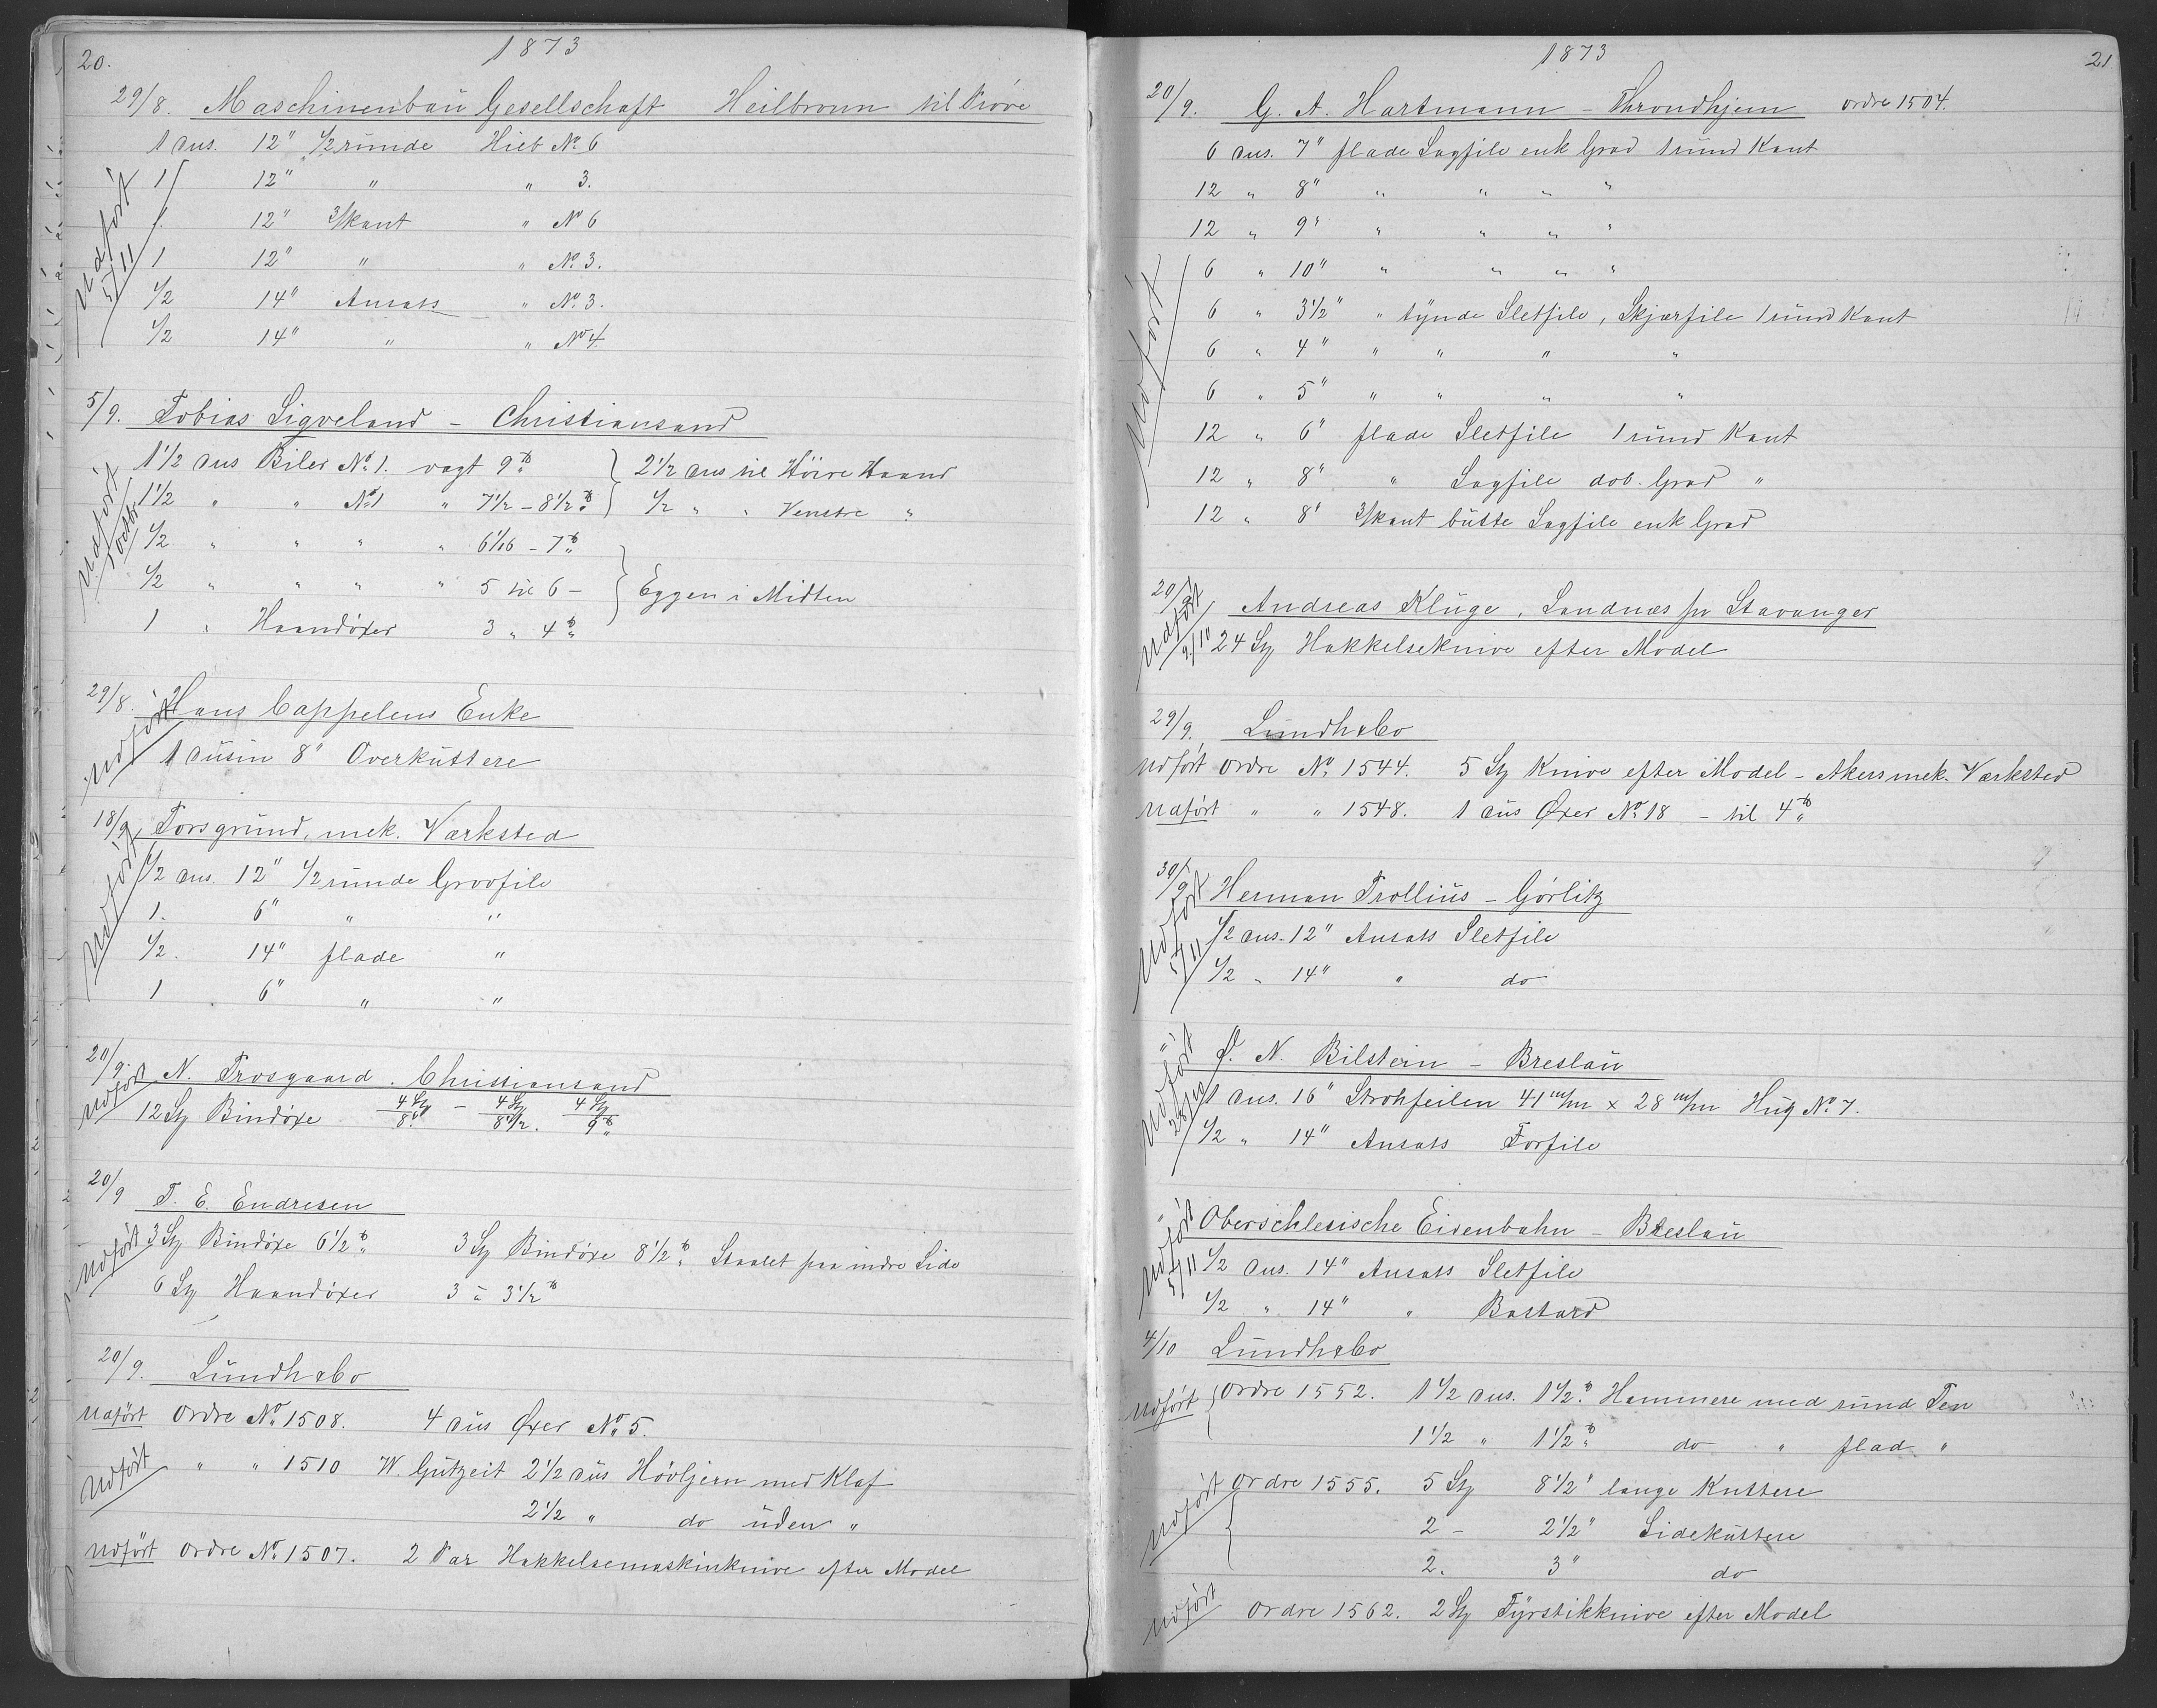 20.
1873
29/8. Maschinenbau Gesellschaft Heilbronn til Prøve
1 dus. 12" 1/2 runde Hieb No 6
1 12" " " 3.
1. 12" 3/kant " No 6
1 12" " " No 3.
1/2 14" Ansats " No 3.
1/2 14" " " No 4
Udført 5/11
5/9. Tobias Sigveland - Christiansand
1 1/2 dus Biler No 1. vægt 9 ℔ } 2 1/2 dus til Höire Haand
1 1/2 " " No 1 " 7 1/2 - 8 1/2 ℔ } 1/2 " " Venstre "
1/2 " " " " 6 1/16 - 7 ℔
1/2 " " " " 5 til 6 - } Eggen i Midten
1 " Haandöxer 3 " 4 ℔
Udført 1 octbr
29/8. Hans Cappelens Enke
Udført 1 dusin 8" Overkuttere
18/9 Porsgrund, mek. Værksted
1/2 dus. 12" 1/2 runde Grovfile
1. 6" " "
1/2. 14" flade "
1 6" " "
Udført
20/9. N. Trosgaard. Christiansand
Udført 12 St Bindöxe 4 St/8 ℔ - 4 St/8 1/2. 4 St/9 ℔
20/9 T. E. Endresen
Udført 3 St Bindöxe 6 1/2 ℔ 3 St Bindöxe 8 1/2 ℔ Staalet paa indre Side
6 St Haandöxer 3 à 3 1/2 ℔
20/9. Lundh & Co
Udført Ordre No 1508. 4 dus Øxer No 5.
Udført " " 1510 W. Gutzeit 2 1/2 dus Hövljern med Klaf
2 1/2 " do uden "
Udført Ordre No 1507. 2 Par Hakkelsemaskinknive efter Model
1873
21
20/9. G. A. Hartmann - Throndhjem Ordre 1504.
6 dus. 7" flade Sagfile enk Grad 1 rund Kant
12 " 8" " " " "
12 " 9" " " " "
6 " 10" " " " "
6 " 3 1/2" " tynde Sletfile, Skjærfile 1 rund Kant
6 " 4" " " " "
6 " 5" " " " "
12 " 6" flade Sletfile 1 rund Kant
12 " 8" " Sagfile dob. Grad "
12 " 8" 3/kant butte Sagfile enk Grad
Udført
20/9 Andreas Kluge, Sandnæs pr Stavanger
Udført 9/10 24 St Hakkelseknive efter Model
29/9. Lundh & Co
Udført Ordre No 1544. 5 St Knive efter Model - Akers mek. Værksted
Udført " " 1548. 1 dus Øxer No 18 - til 4 ℔
30/9 Herman Trollius - Görlitz
1/2 dus. 12" Ansats Sletfile
1/2 " 14" " do
Udført 5/11
" N. Bilstein - Breslau
1 dus. 16" Strohfeilen 41 m/m x 28 m/m Hug No 7.
1/2 " 14" Ansats Forfile
Udført
" Oberschlesische Eisenbahn - Breslau
1/2 dus. 14" Ansats Sletfile
1/2 " 14" " Bastard
Udført 5/11
4/10 Lundh & Co
Udført { Ordre 1552. 1 1/2 dus. 1 1/2 ℔ Hammere med rund Pen
1 1/2 " 1 1/2 ℔ do " flad "
Udført { Ordre 1555. 5 St 8 1/2" lange Kuttere
2 - 2 1/2" Sidekuttere
2. 3" do
Udført Ordre 1562. 2 St Fyrstikknive efter Model